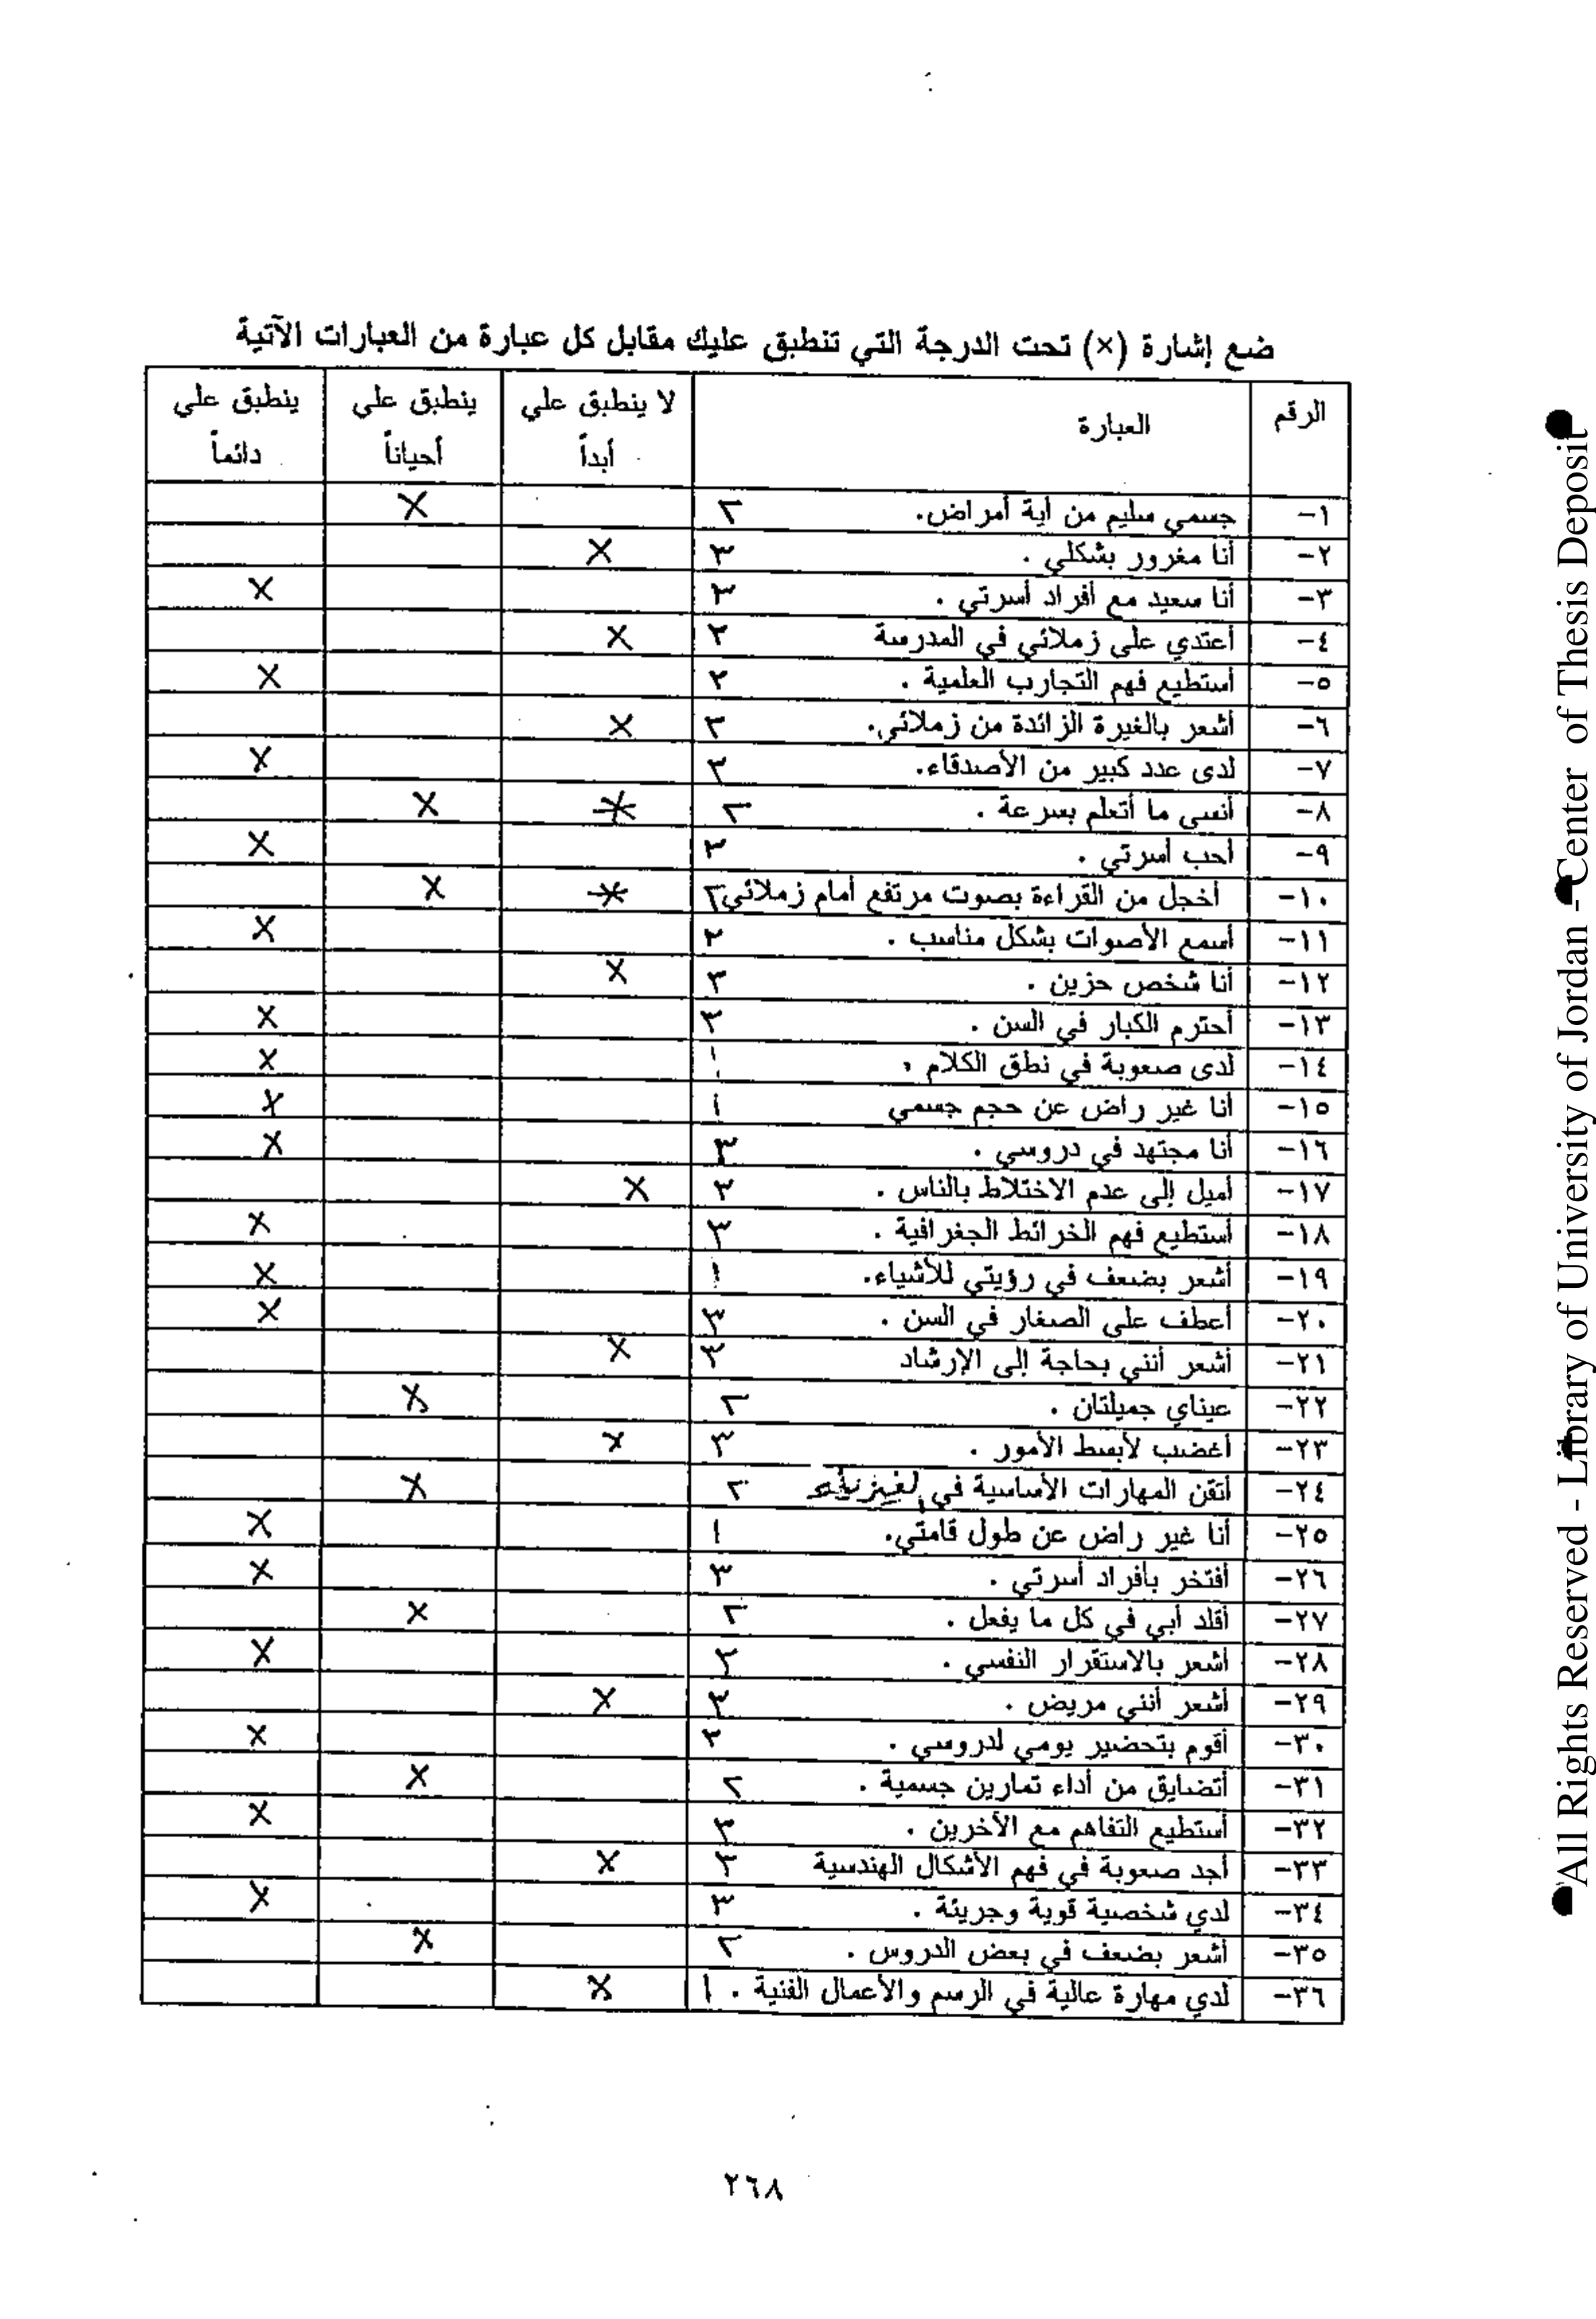 ضع إشارة (×) تحت الدرجة التي تنطبق عليك مقابل كل عبارة من العبارات الآتية
الرقم العبارة لا ينطبق علي أبداً ينطبق علي أحياناً ينطبق علي دائماً
١- جسمي سليم من أية أمراض. ٢ X
٢- أنا مغرور بشكلي . ٣ X
٣- أنا سعيد مع أفراد أسرتي . ٣ X
٤- أعتدي على زملائي في المدرسة ٣ X
٥- أستطيع فهم التجارب العلمية . ٣ X
٦- أشعر بالغيرة الزائدة من زملائي. ٣ X
٧- لدى عدد كبير من الأصدقاء. ٣ X
٨- أنسى ما أتعلم بسرعة . ٢ X X
٩- أحب أسرتي . ٣ X
١٠- أخجل من القراءة بصوت مرتفع أمام زملائي ٢ X X
١١- أسمع الأصوات بشكل مناسب . ٣ X
١٢- أنا شخص حزين . ٣ X
١٣- أحترم الكبار في السن . ٣ X
١٤- لدى صعوبة في نطق الكلام . ١ X
١٥- أنا غير راض عن حجم جسمي ١ X
١٦- أنا مجتهد في دروسي . ٣ X
١٧- أميل إلى عدم الاختلاط بالناس . ٣ X
١٨- أستطيع فهم الخرائط الجغرافية . ٣ X
١٩- أشعر بضعف في رؤيتي للأشياء. ١ X
٢٠- أعطف على الصغار في السن . ٣ X
٢١- أشعر أنني بحاجة إلى الإرشاد ٣ X
٢٢- عيناي جميلتان . ٢ X
٢٣- أغضب لأبسط الأمور . ٣ X
٢٤- أتقن المهارات الأساسية في ٢ X
٢٥- أنا غير راض عن طول قامتي. ١ X
٢٦- أفتخر بأفراد أسرتي . ٣ X
٢٧- أقلد أبي في كل ما يفعل . ٢ X
٢٨- أشعر بالاستقرار النفسي . ٣ X
٢٩- أشعر أنني مريض . ٣ X
٣٠- أقوم بتحضير يومي لدروسي . ٣ X
٣١- أتضايق من أداء تمارين جسمية . ٢ X
٣٢- أستطيع التفاهم مع الآخرين . ٣ X
٣٣- أجد صعوبة في فهم الأشكال الهندسية ٣ X
٣٤- لدي شخصية قوية وجريئة . ٣ X
٣٥- أشعر بضعف في بعض الدروس . ٢ X
٣٦- لدي مهارة عالية في الرسم والأعمال الفنية . ١ X
٢٦٨
All Rights Reserved - Library of University of Jordan - Center of Thesis Deposit